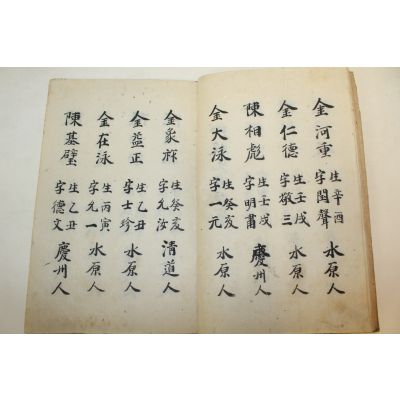 金河重 生辛酉 字聞聲 水原人
金仁德 生壬戌 字敬三 水原人
陳相彪 生壬戌 字明肅 慶州人
金大泳 生癸亥 字一元 水原人
金象 生癸亥 字允汝 清道人
金益正 生乙丑 字士珍 水原人
金在泳 生丙寅 字允一 水原人
陳基璧 生乙丑 字德文 慶州人